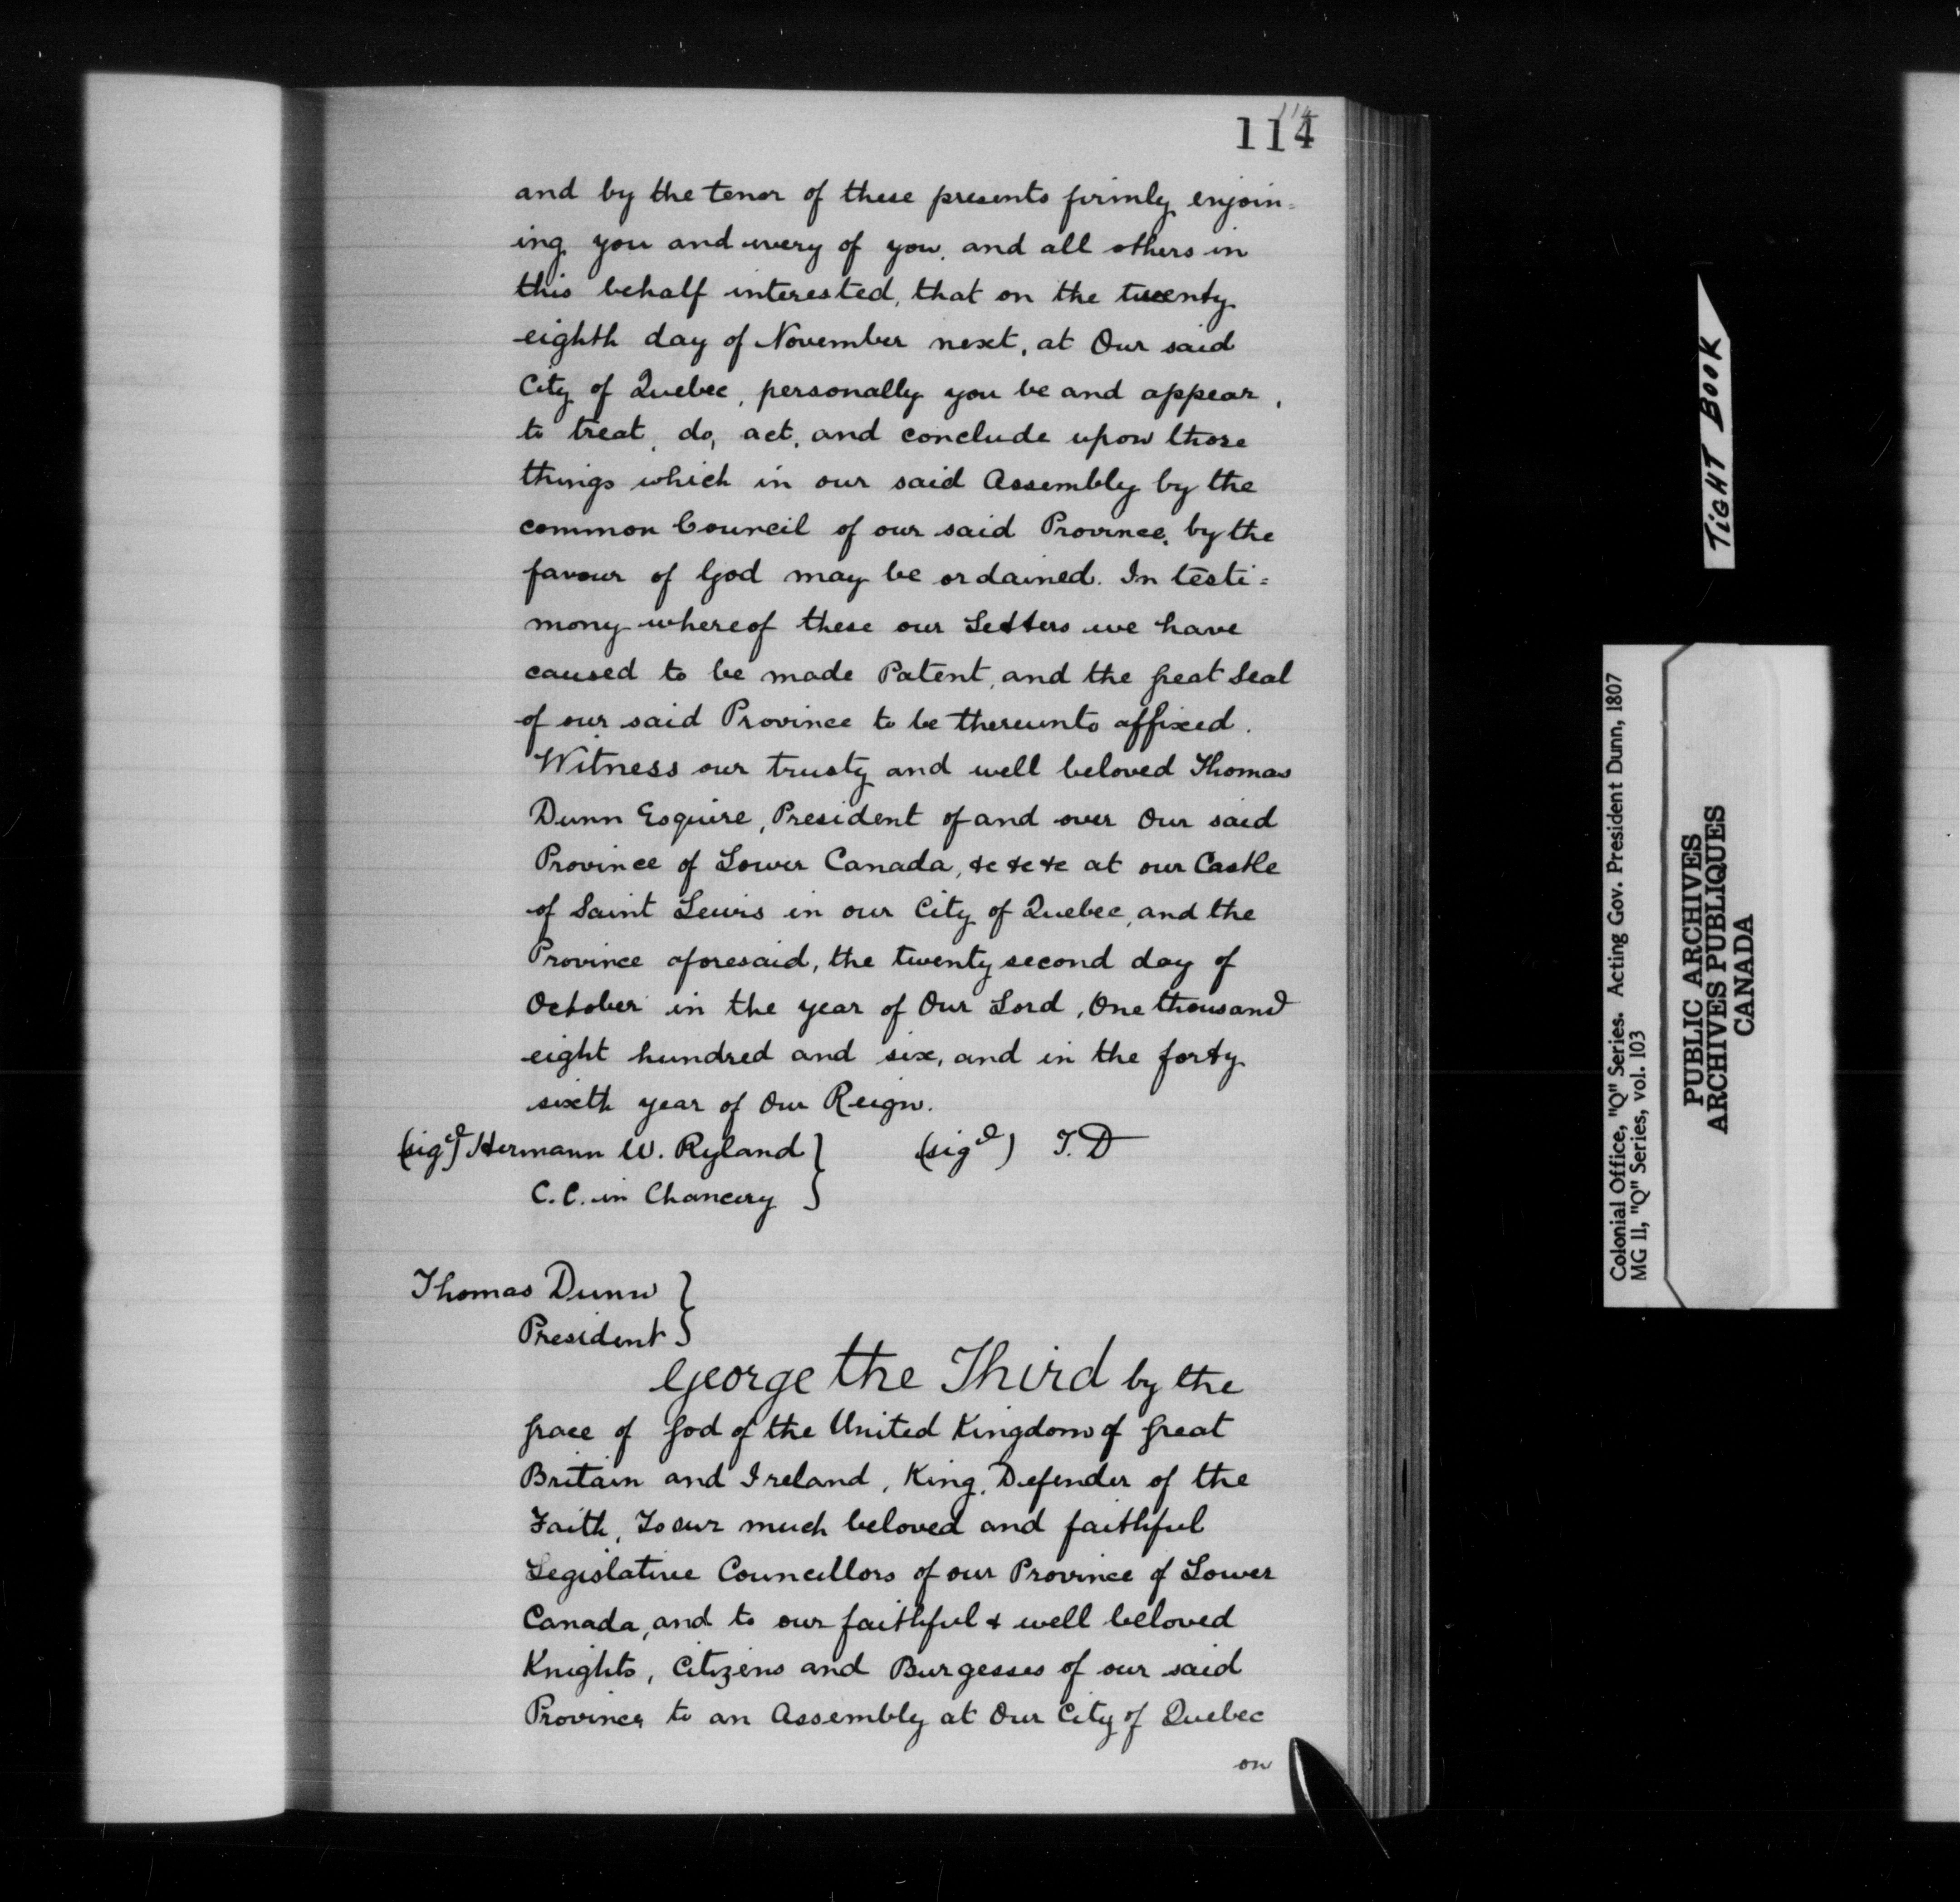 114
114
and by the tenor of these presents firmly enjoin=
ing you and every of you, and all others in
this behalf interested, that on the twenty
eighth day of November next, at Our said
City of Quebec, personally you be and appear,
to treat, do, act, and conclude upon those
things which in our said Assembly by the
common Council of our said Province, by the
favour of God may be ordained. In testi=
mony whereof these our Letters we have
caused to be made Patent, and the great Seal
of our said Province to be thereunto affixed.
Witness our trusty and well beloved Thomas
Dunn Esquire, President of and over Our said
Province of Lower Canada, &c &c &c at our Castle
of Saint Lewis in our City of Quebec, and the
Province aforesaid, the twenty second day of
October in the year of Our Lord, One thousand
eight hundred and six, and in the forty
sixth year of Our Reign.
(sigd) Hermann W. Ryland } (sigd) T. D
C. C. in Chancery }
Thomas Dunn }
President }
George the Third by the
grace of God of the United Kingdom of Great
Britain and Ireland, King, Defender of the
Faith, To our much beloved and faithful
Legislative Councillors of our Province of Lower
Canada, and to our faithful & well beloved
Knights, Citizens and Burgesses of our said
Province, to an Assembly at Our City of Quebec
on
TIGHT BOOK
Colonial Office, "Q" Series. Acting Gov. President Dunn, 1807
MG 11, "Q" Series, vol. 103
PUBLIC ARCHIVES
ARCHIVES PUBLIQUES
CANADA